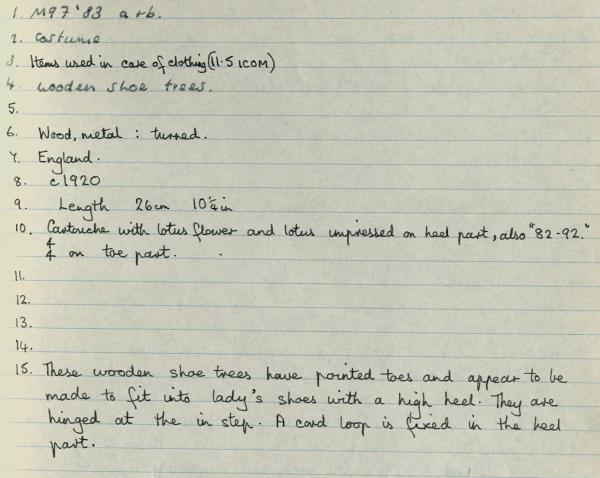 1. M97'83 a + b.
2. Costume
3. Items used in care of clothing (11.5 ICOM)
4. Wooden shoe trees.
5.
6. Wood, metal : turned.
7. England.
8. c1920
9. Length 26cm 10¼in
10. Cartouche with lotus flower and lotus impressed on heel part, also "82-92."
4/4 on toe part.
11.
12.
13.
14.
15. These wooden shoe trees have pointed toes and appear to be
made to fit into lady's shoes with a high heel. They are
hinged at the in step. A cord loop is fixed in the heel
part.